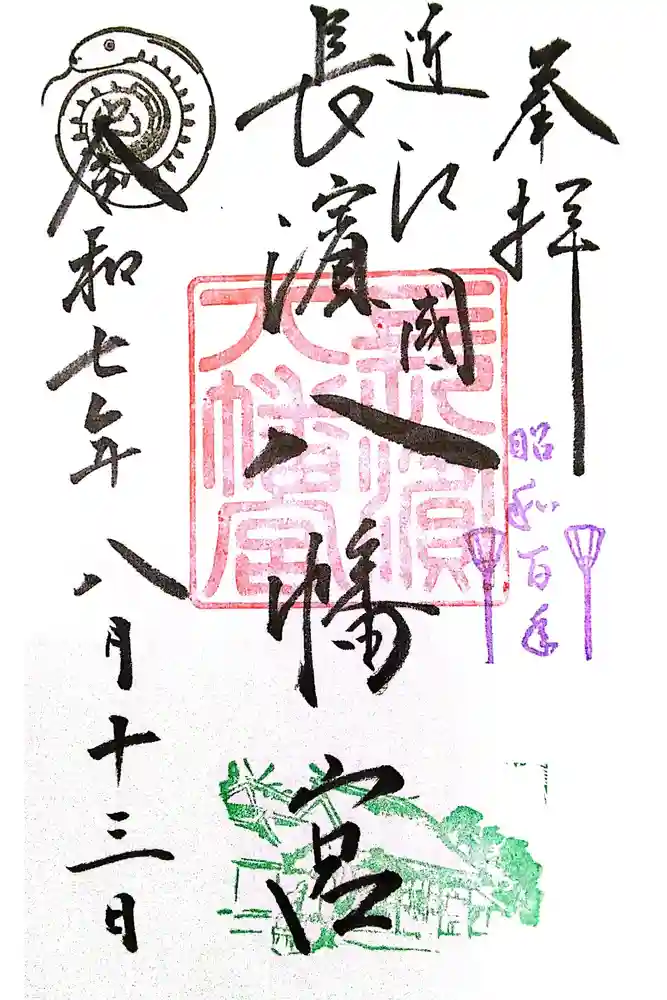 奉拝
昭和百年
近江國
長濱八幡宮
長濱
八幡宮
巳
令和七年八月十三日